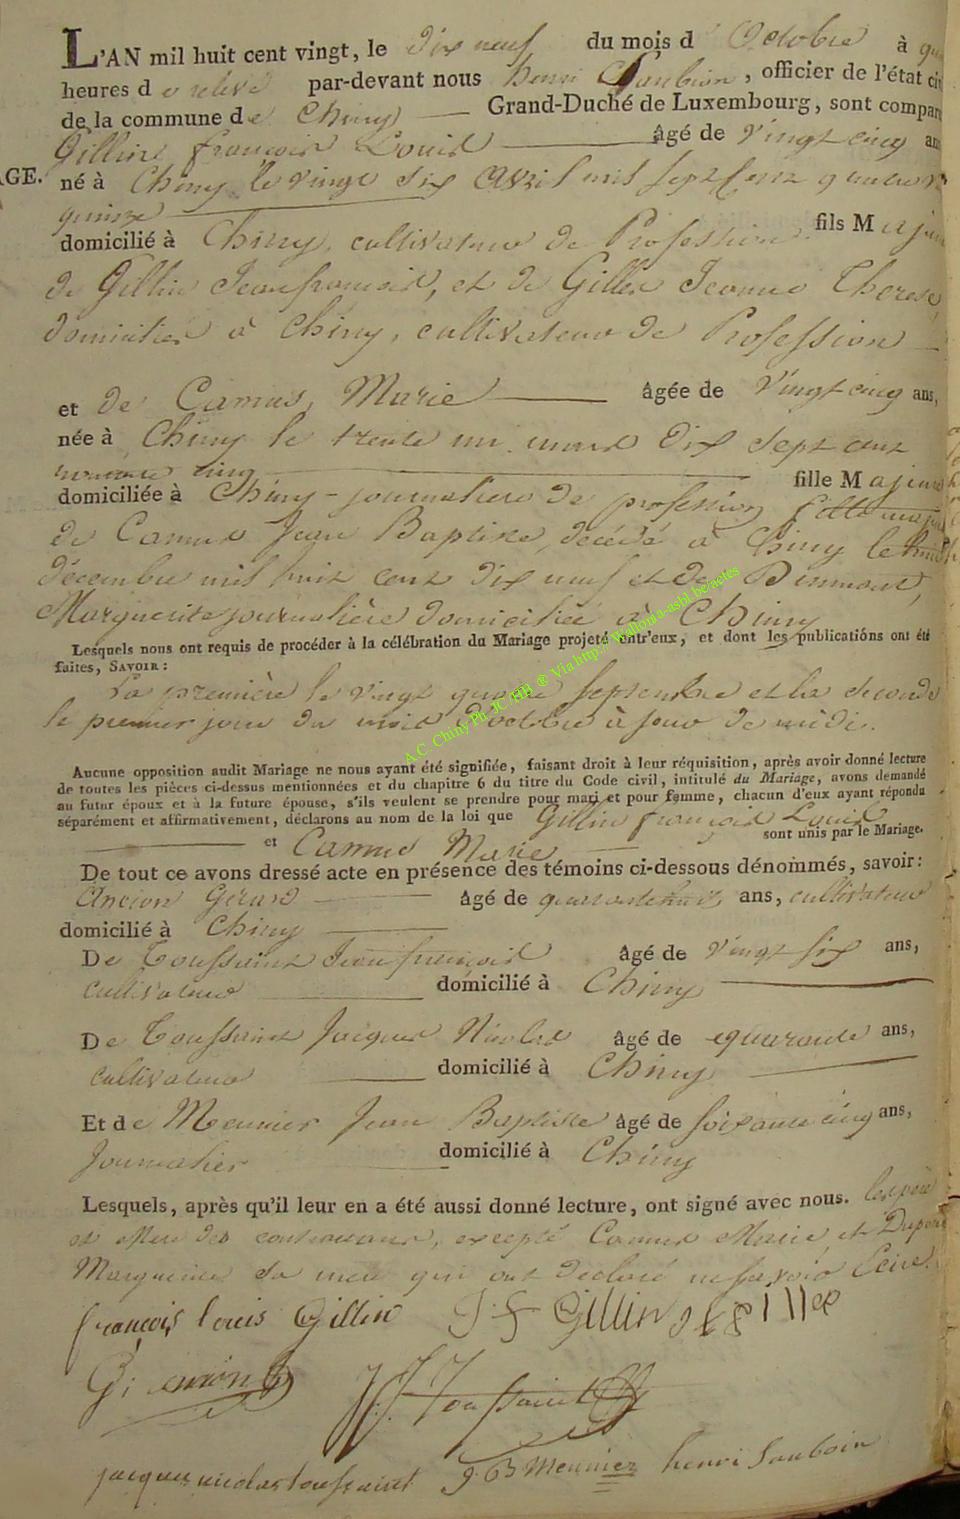 L'AN mil huit cent vingt, le dix neuf du mois d Octobre à
heures d e relevé par-devant nous henri Sauboin, officier de l'état
de la commune de Chiny Grand-Duché de Luxembourg, sont
Gillin françois Louis âgé de vingt cinq
GE. né à Chiny le vingt six avril mil sept cent quatre
quinze
domicilié à Chiny, cultivateur de Profession fils M ajeur
de Gillin Jean françois, et de Gillet Jeanne Therese,
domiciliés à Chiny, cultivateur de Profession
et de Camus, Marie âgée de Vingt cinq ans,
née à Chiny le trente un mars dix sept cent
cinq fille M ajeure
domiciliée à Chiny - journaliere de profession fille
de Camus Jean Baptiste, décédé à Chiny le
décembre mil huit cent dix neuf et de
Marguerite journalière domiciliée à Chiny
Lesquels nous ont requis de procéder à la célébration du Mariage projeté entr'eux, et dont les publications ont été
faites, SAVOIR :
La première le vingt quatre septembre et la seconde
le premier jour du mois d'octobre à jour de midi.
Aucune opposition audit Mariage ne nous ayant été signifiée, faisant droit à leur réquisition, après avoir donné lecture
de toutes les pièces ci-dessus mentionnées et du chapitre 6 du titre du Code civil, intitulé du Mariage, avons demandé
au futur époux et à la future épouse, s'ils veulent se prendre pour mari et pour femme, chacun d'eux ayant répondu
séparément et affirmativement, déclarons au nom de la loi que Gillin françois Louis
et Camus Marie sont unis par le Mariage.
De tout ce avons dressé acte en présence des témoins ci-dessous dénommés, savoir :
Ancion Gérard âgé de quarante ans, cultivateur
domicilié à Chiny
De Toussaint Jean françois âgé de vingt six ans,
cultivateur domicilié à Chiny
De Toussaint Jacques Nicolas âgé de quarante ans,
cultivateur domicilié à Chiny
Et de Meunier Jean Baptiste âgé de soixante cinq ans,
Journalier domicilié à Chiny
Lesquels, après qu'il leur en a été aussi donné lecture, ont signé avec nous. les père
et Mere des contractans, excepté Camus Marie et
Marguerite sa mere qui ont déclaré ne savoir Ecrire.
françois louis Gillin J F Gillin
J F Toussaint
jacque nicolas toussaint J B Meunier henri Sauboin
A.C. Chiny Ph. JC/HB @ Via http://Wallonia-asbl.be/actes